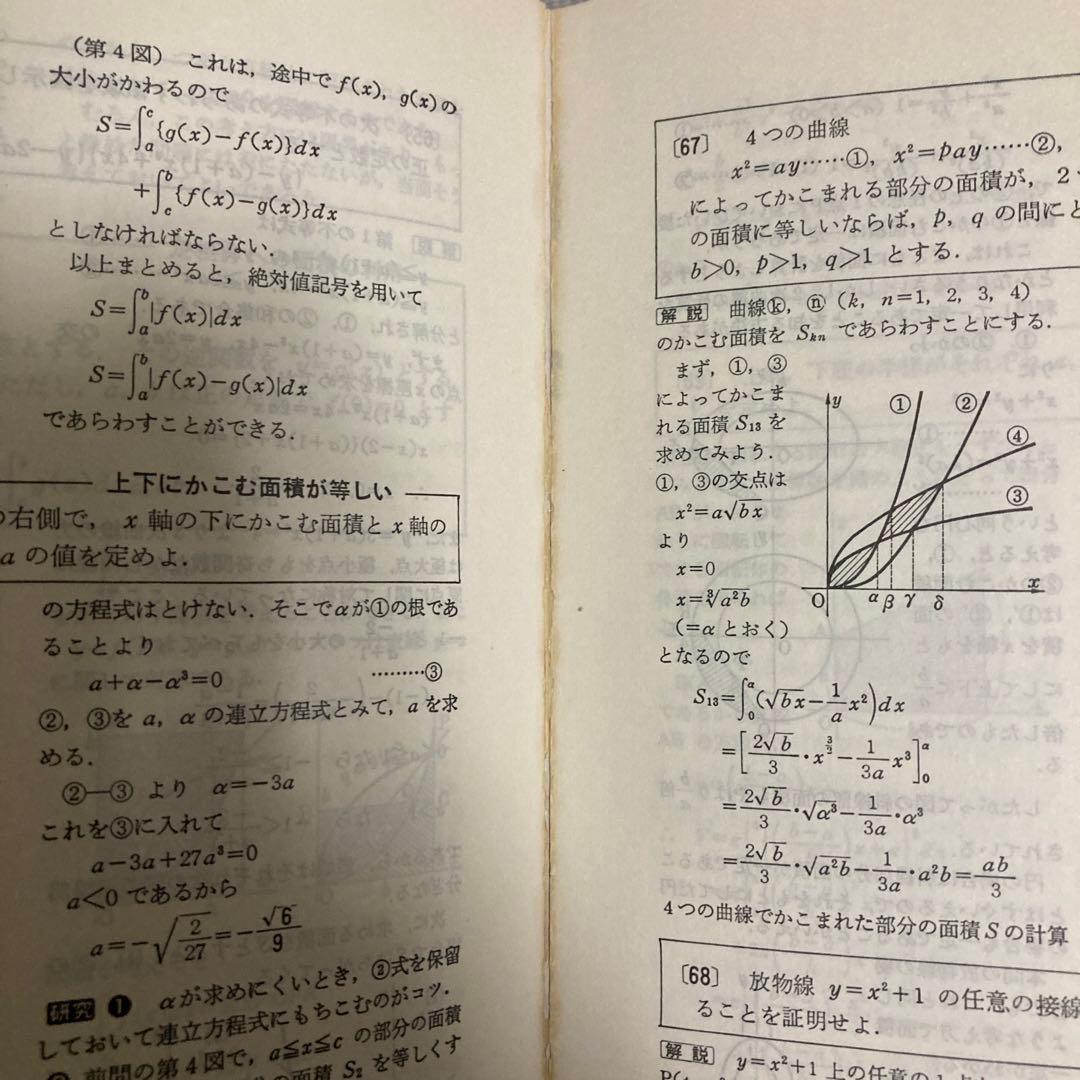 （第4図） これは，途中で f(x)，g(x)の
大小がかわるので
S=∫_a^c{g(x)−f(x)}dx
+∫_c^b{f(x)−g(x)}dx
としなければならない．
以上まとめると，絶対値記号を用いて
S=∫_a^b|f(x)|dx
S=∫_a^b|f(x)−g(x)|dx
であらわすことができる．
上下にかこむ面積が等しい
の右側で， x 軸の下にかこむ面積と x 軸の
a の値を定めよ．
の方程式はとけない．そこでαが①の根であ
ることより
a+α−α³=0 ………③
②，③を a，α の連立方程式とみて，a を求
める．
②―③ より α=−3a
これを③に入れて
a−3a+27a³=0
a<0 であるから
a=−√(2/27)=−√6/9
研究 ❶ αが求めにくいとき，②式を保留
しておいて連立方程式にもちこむのがコツ．
前問の第4図で，a≦x≦c の部分の面積
の面積 S₂ を等しくす
〔67〕 4つの曲線
x²=ay……①， x²=pay……②，
によってかこまれる部分の面積が， 2
の面積に等しいならば，p，q の間に
b>0，p>1，q>1 とする．
解説 曲線ⓚ，ⓝ (k，n=1，2，3，4)
のかこむ面積を S_kn であらわすことにする．
まず，①，③
によってかこま
れる面積 S₁₃ を
求めてみよう．
①，③の交点は
x²=a√bx
より
x=0
x=∛a²b
(=α とおく)
となるので
y ① ② ④ ③
O α β γ δ x
S₁₃=∫_0^α(√bx−(1/a)x²)dx
=[(2√b/3)・x^(3/2)−(1/3a)x³]_0^α
=(2√b/3)・√α³−(1/3a)・α³
=(2√b/3)・√a²b−(1/3a)・a²b=ab/3
4つの曲線でかこまれた部分の面積 S の計算
〔68〕 放物線 y=x²+1 の任意の接線
ることを証明せよ．
解説 y=x²+1 上の任意の